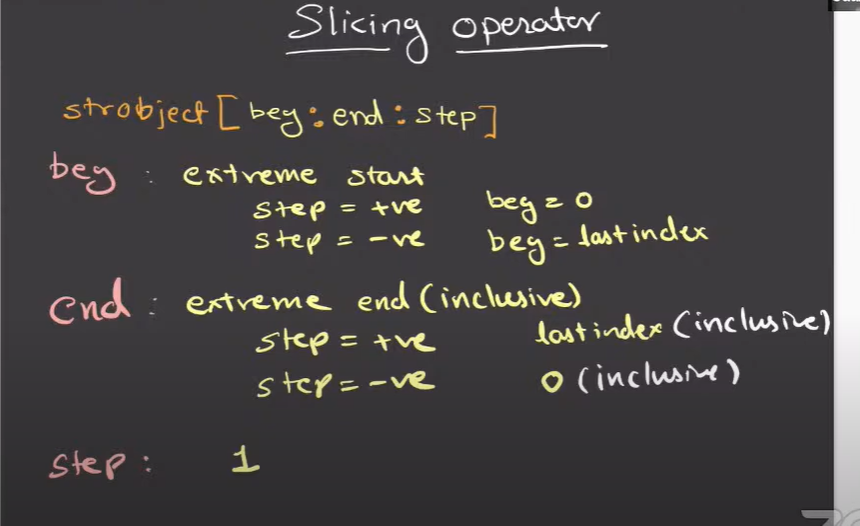 Slicing operator
strobject[beg:end:step]
beg : extreme start
step = +ve beg = 0
step = -ve beg = last index
end : extreme end (inclusive)
step = +ve last index (inclusive)
step = -ve 0 (inclusive)
step : 1